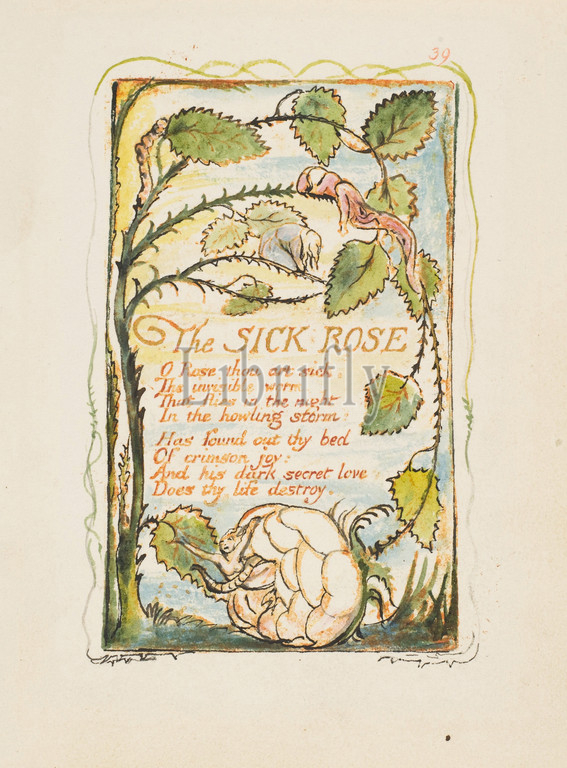 39
The SICK ROSE
O Rose thou art sick.
The invisible worm.
That flies in the night
In the howling storm:
Has found out thy bed
Of crimson joy:
And his dark secret love
Does thy life destroy.
Librifly